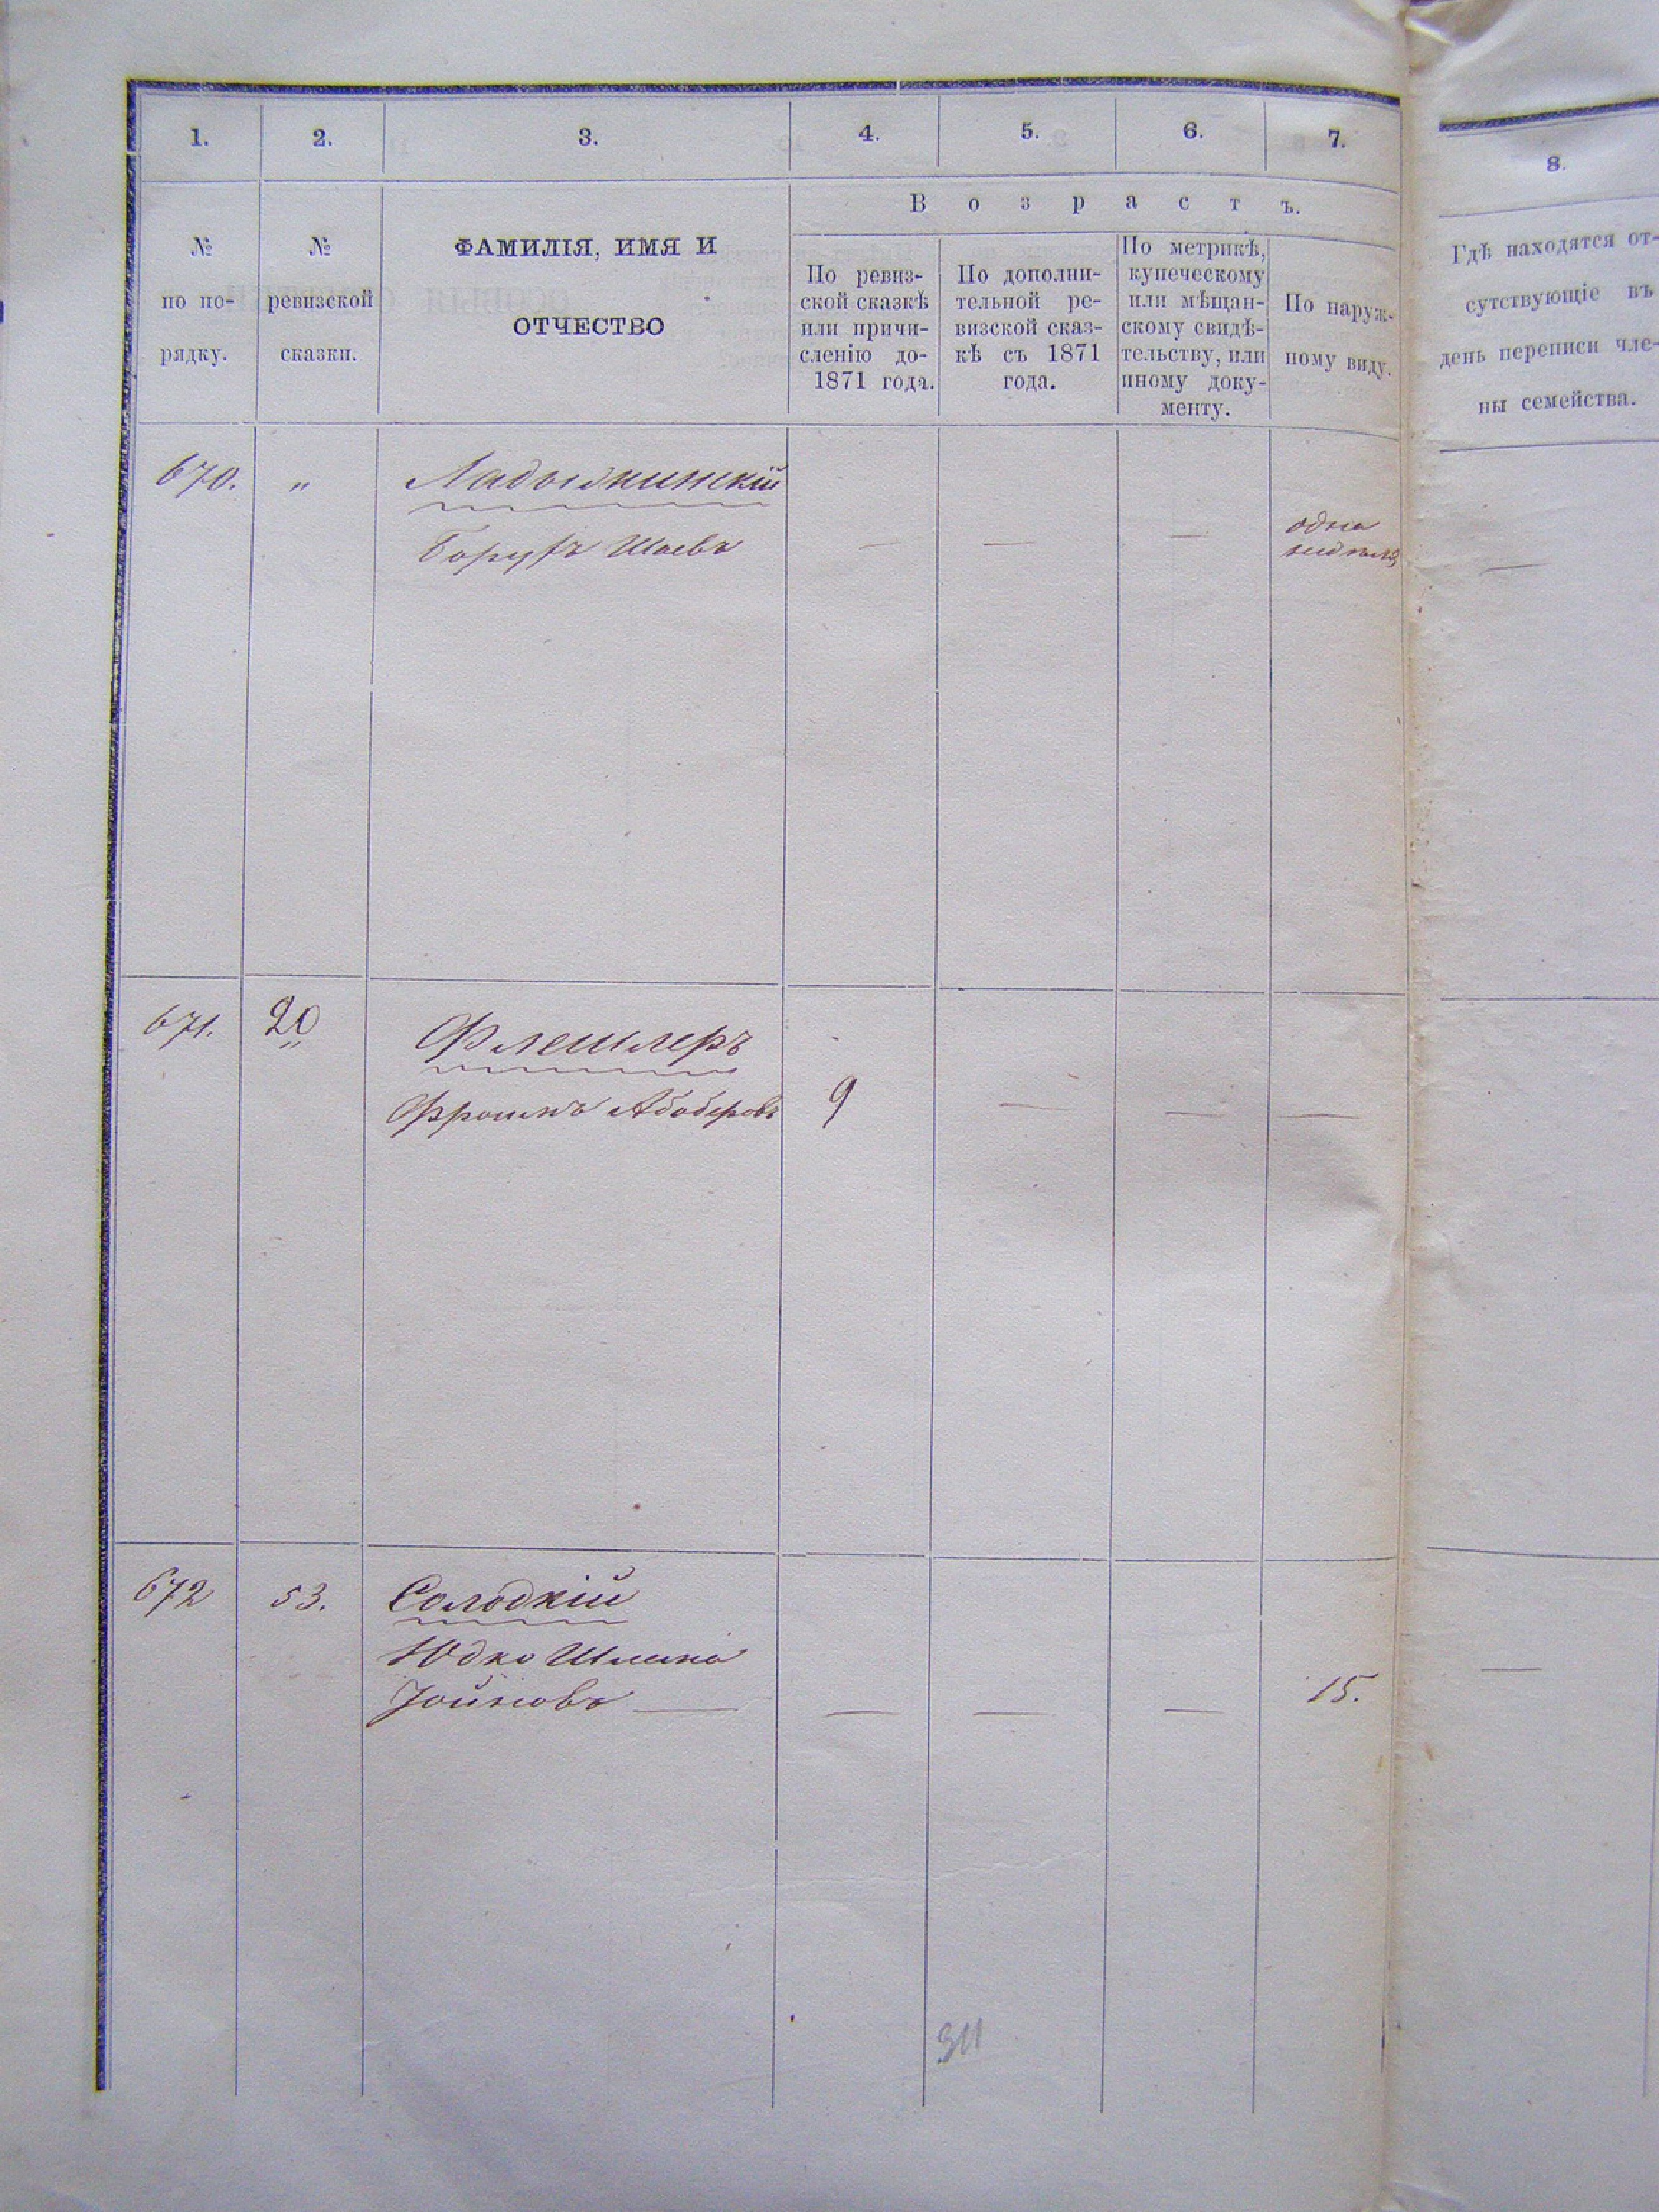 1. 2. 3. 4. 5. 6. 7. 8.
Возрастъ.
№
по по-
рядку.
№
ревизской
сказки.
ФАМИЛІЯ, ИМЯ И
ОТЧЕСТВО
По ревиз-
ской сказкѣ
или причи-
сленію до-
1871 года.
По дополни-
тельной ре-
визской сказ-
кѣ съ 1871
года.
По метрикѣ,
купеческому
или мѣщан-
скому свидѣ-
тельству, или
иному доку-
менту.
По наруж-
ному виду.
Гдѣ находятся от-
сутствующіе въ
день переписи чле-
ны семейства.
670. „ Ладыжинскій
Борухъ Шаевъ — — — —
одна
недѣля
671. 20 „ Флешлеръ
9 — — —
672 53. Солодкій
Юдко Шлема
Іойновъ — — — — 15. —
311